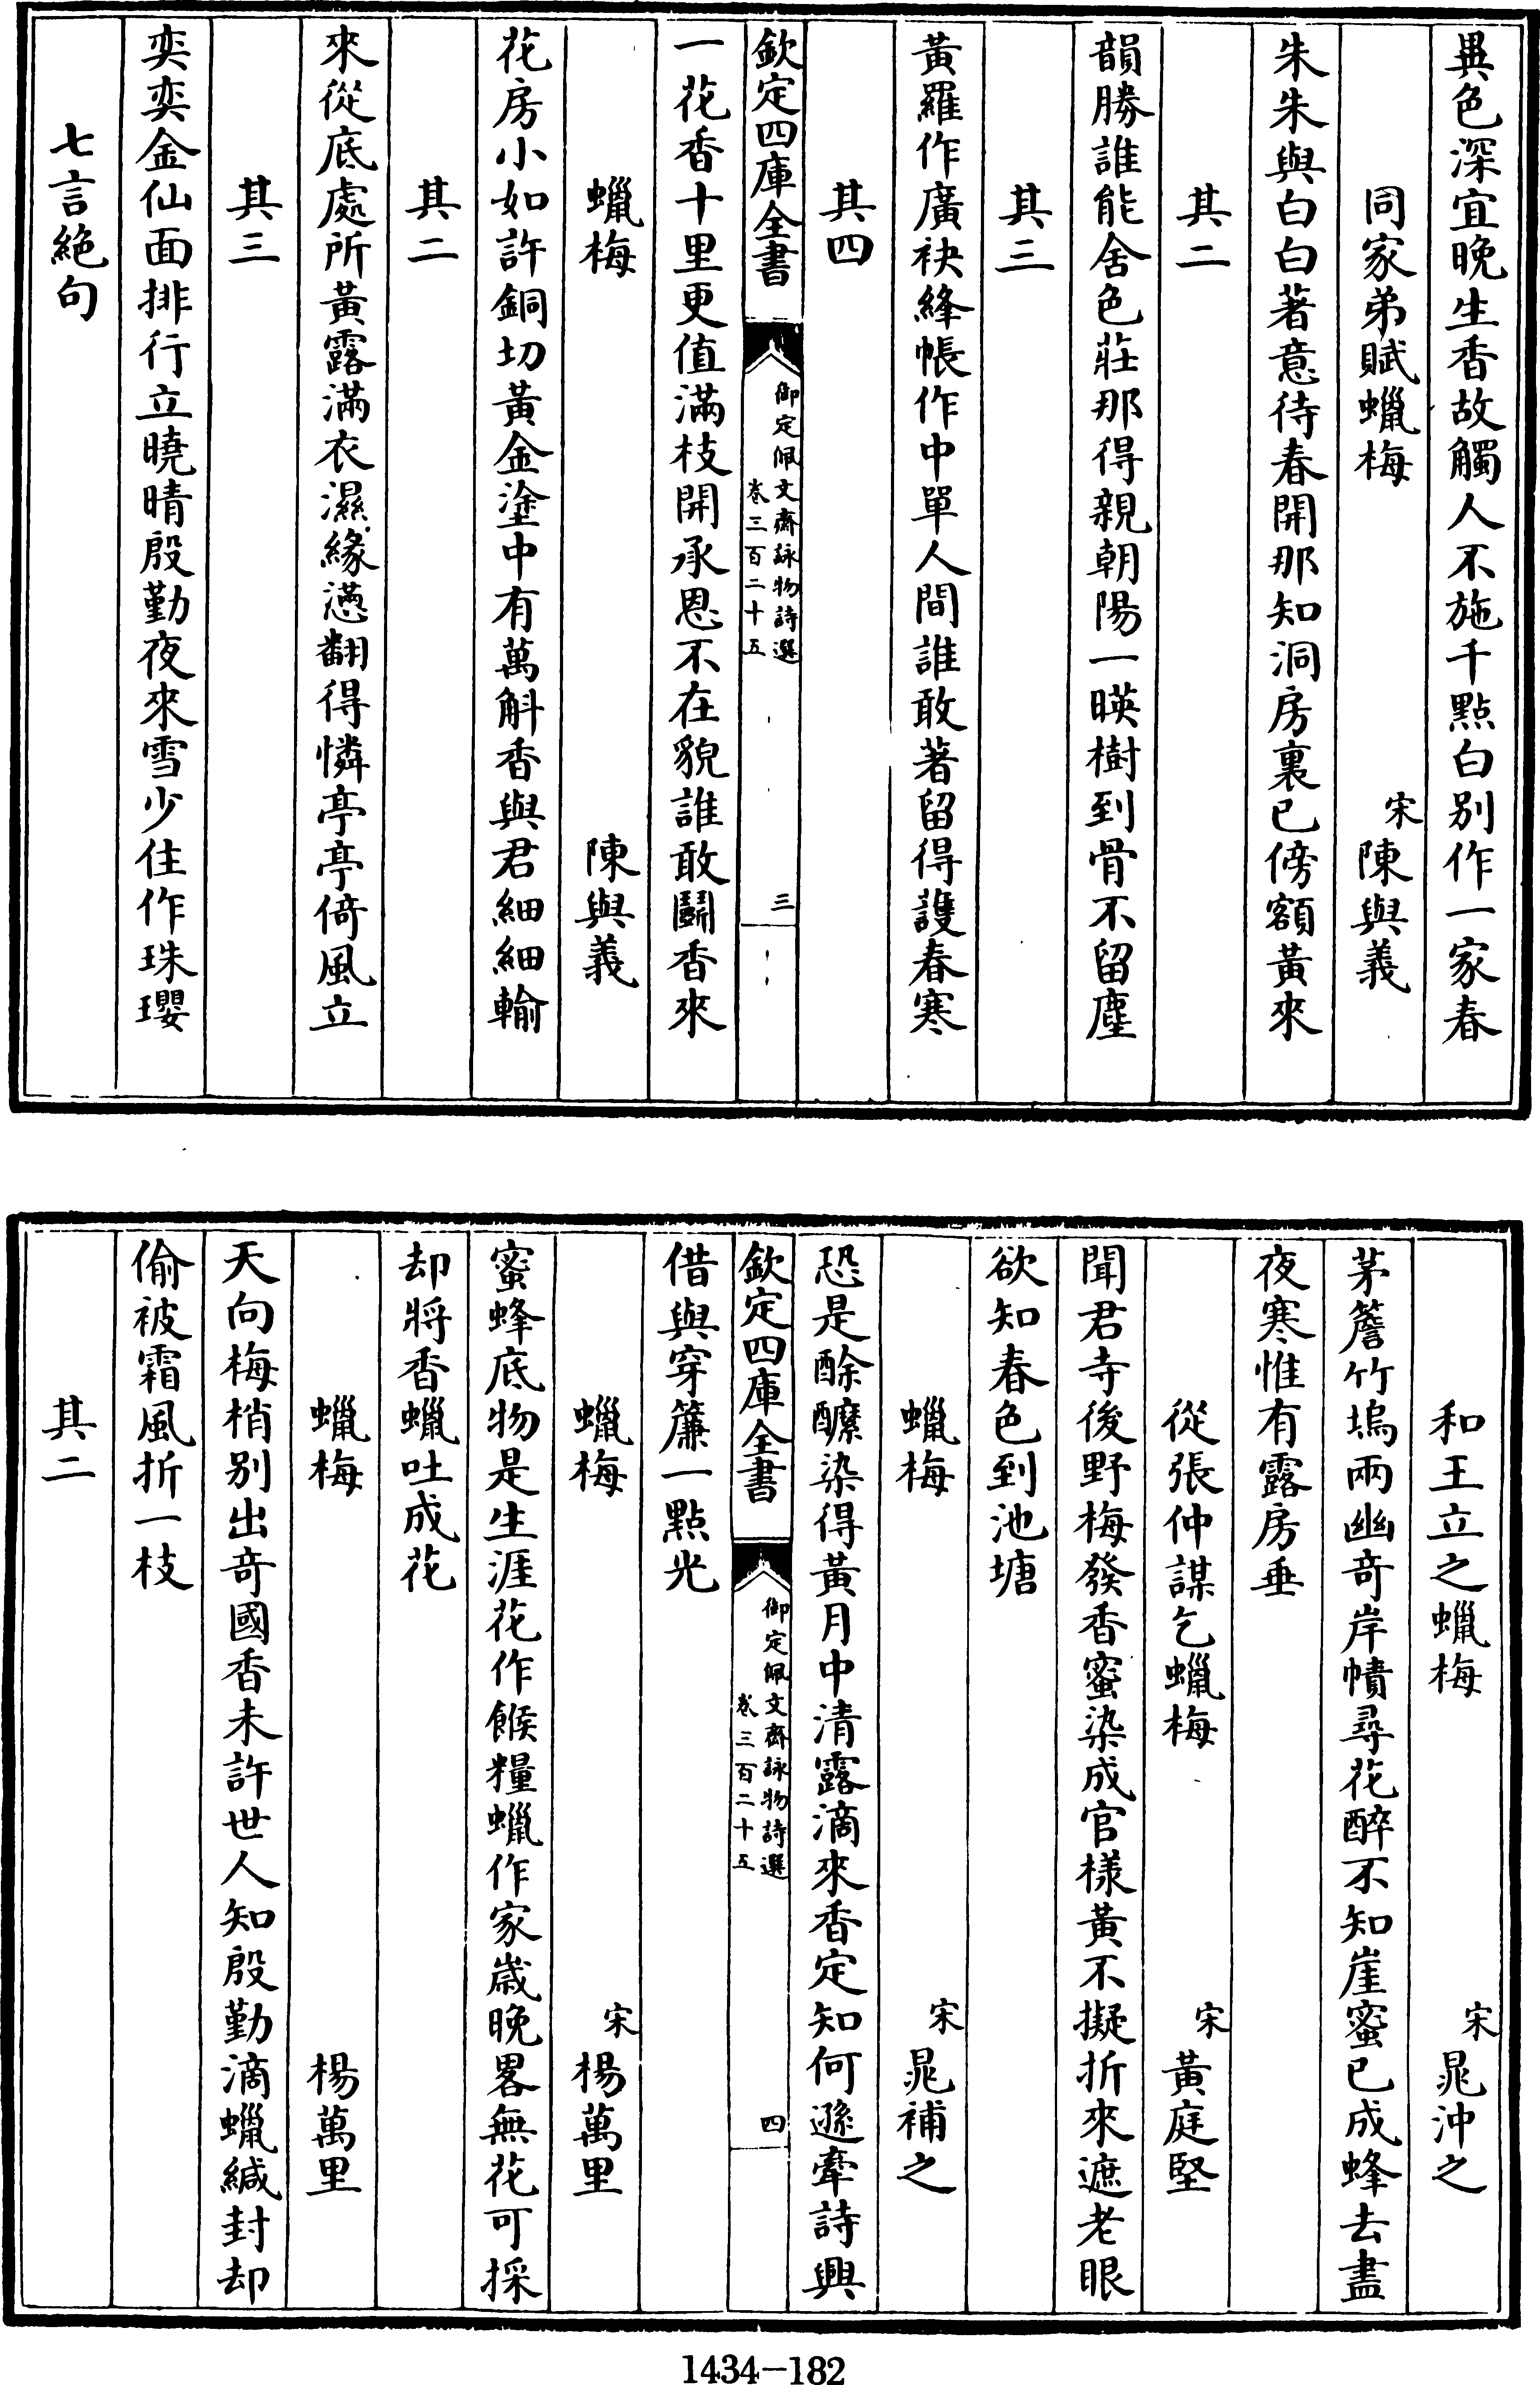 異色深宜晚生香故觸人不施千點白别作一家春
同家弟賦蠟梅 宋陳與義
朱朱與白白著意待春開那知洞房裏已傍額黃來
其二
韻勝誰能舍色莊那得親朝陽一暎樹到骨不留塵
其三
黃羅作廣袂絳帳作中單人間誰敢著留得護春寒
其四
欽定四庫全書 御定佩文齋詠物詩選 卷三百二十五 三
一花香十里更值滿枝開承恩不在貌誰敢鬭香來
蠟梅 陳與義
花房小如許銅切黃金塗中有萬斛香與君細細輸
其二
來從底處所黃露滿衣濕緣憑翻得憐亭亭倚風立
其三
奕奕金仙面排行立曉晴殷勤夜來雪少住作珠瓔
七言絶句
和王立之蠟梅 宋晁沖之
茅簷竹塢兩幽奇岸幘尋花醉不知崖蜜已成蜂去盡
夜寒惟有露房垂
從張仲謀乞蠟梅 宋黃庭堅
聞君寺後野梅發香蜜染成官樣黃不擬折來遮老眼
欲知春色到池塘
蠟梅 宋晁補之
恐是酴醾染得黃月中清露滴來香定知何遜牽詩興
欽定四庫全書 御定佩文齋詠物詩選 卷三百二十五 四
借與穿簾一點光
蠟梅 宋楊萬里
蜜蜂底物是生涯花作餱糧蠟作家歲晚畧無花可採
却將香蠟吐成花
蠟梅 楊萬里
天向梅梢別出奇國香未許世人知殷勤滴蠟緘封却
偷被霜風折一枝
其二
1434-182